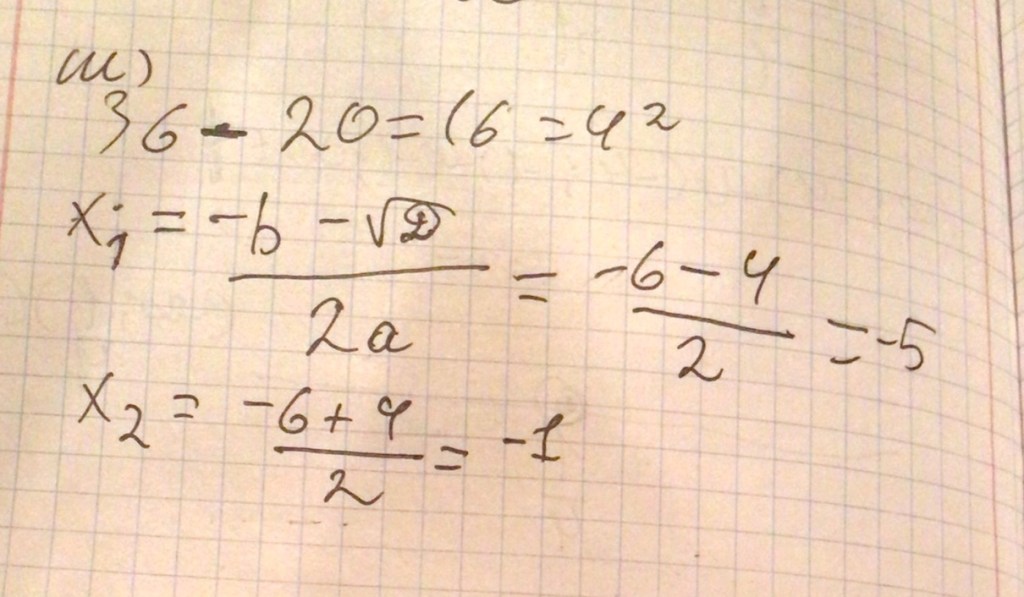 ш)
36 - 20 = 16 = 4²
x₁ = (-b - √D) / 2a = (-6 - 4) / 2 = -5
x₂ = (-6 + 4) / 2 = -1